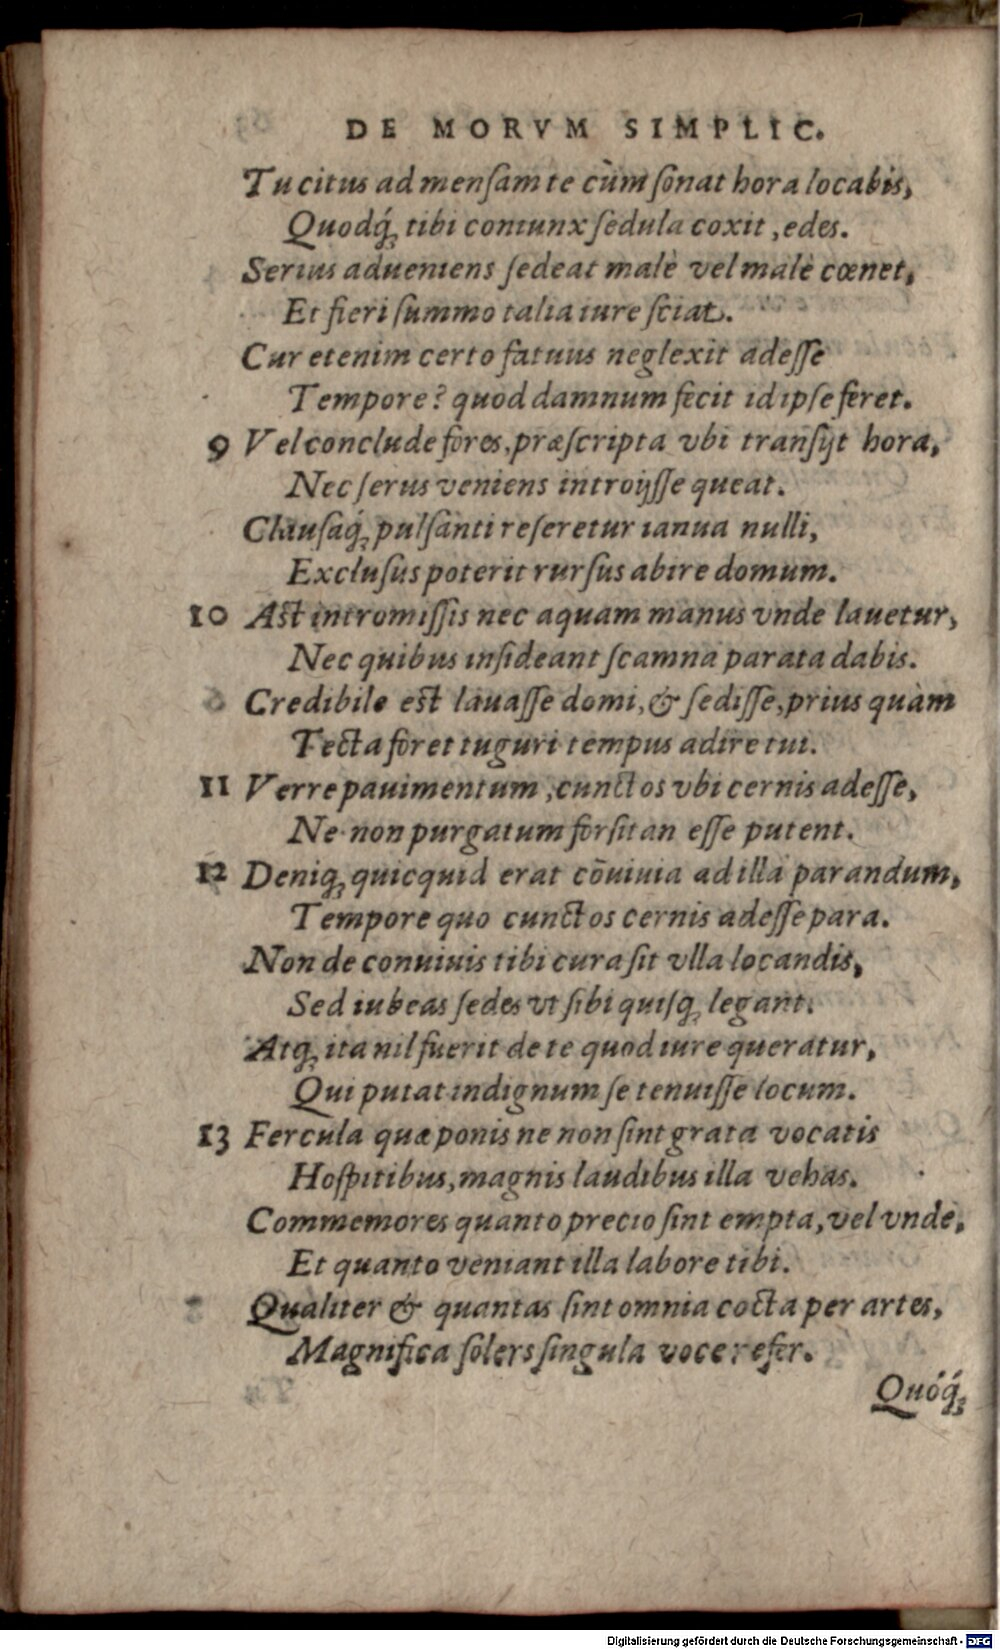 DE MORVM SIMPLIC.
Tu citus ad mensam te cùm sonat hora locabis,
Quodq́; tibi coniunx sedula coxit, edes.
Serius adueniens sedeat malè vel malè cœnet,
Et fieri summo talia iure sciat.
Cur etenim certo fatuus neglexit adesse
Tempore? quod damnum fecit id ipse feret.
9 Vel conclude fores, præscripta vbi transijt hora,
Nec serus veniens introijsse queat.
Clausaq́; pulsanti reseretur ianua nulli,
Exclusus poterit rursus abire domum.
10 Ast intromissis nec aquam manus vnde lauetur,
Nec quibus insideant scamna parata dabis.
Credibile est lauasse domi, & sedisse, prius quàm
Tecta foret tuguri tempus adire tui.
11 Verre pauimentum, cunctos vbi cernis adesse,
Ne non purgatum forsitan esse putent.
12 Deniq; quicquid erat cōuiuia ad illa parandum,
Tempore quo cunctos cernis adesse para.
Non de conuiuis tibi cura sit vlla locandis,
Sed iubeas sedes vt sibi quisq; legant.
Atq; ita nil fuerit de te quod iure queratur,
Qui putat indignum se tenuisse locum.
13 Fercula quæ ponis ne non sint grata vocatis
Hospitibus, magnis laudibus illa vehas.
Commemores quanto precio sint empta, vel vnde,
Et quanto veniant illa labore tibi.
Qualiter & quantas sint omnia cocta per artes,
Magnifica solers singula voce refer.
Quóq́;
Digitalisierung gefördert durch die Deutsche Forschungsgemeinschaft - DFG